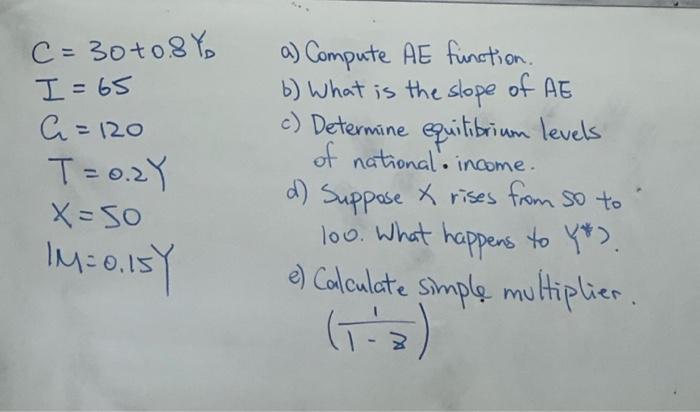 C = 30+0.8 Y_D
I = 65
G = 120
T = 0.2Y
X = 50
IM = 0.15Y
a) Compute AE function.
b) What is the slope of AE
c) Determine equilibrium levels
of national income.
d) Suppose X rises from 50 to
100. What happens to Y*?.
e) Calculate simple multiplier.
(1/(1-z))